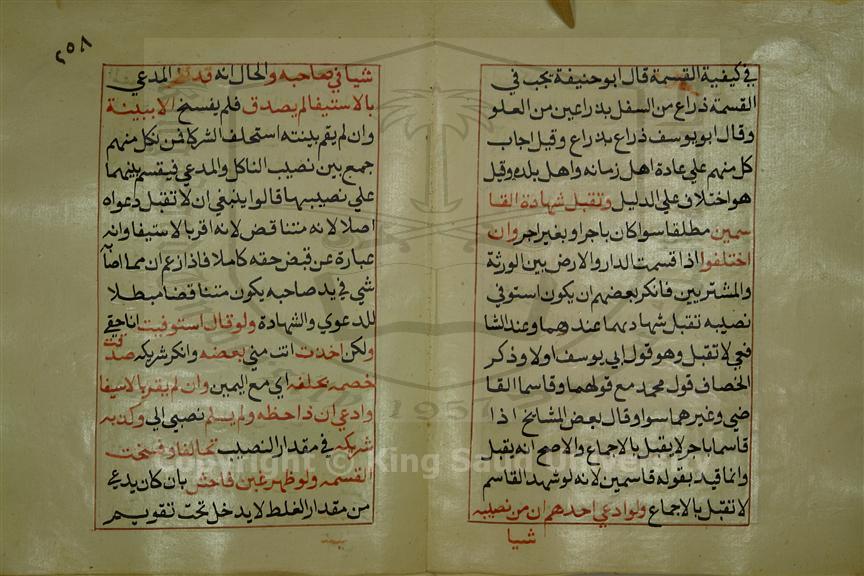 في كيفية القسمة قال ابو حنيفة يجب في
القسمة ذراع من السفل بذراعين من العلو
وقال ابو يوسف ذراع بذراع وقيل اجاب
كل منهم علي عادة اهل زمانه واهل بلده وقيل
هو اختلاف علي الدليل وتقبل شهادة القا
سمين مطلقا سوا كان باجر او بغير اجر وان
اختلفوا اذا قسمت الدار والارض بين الورثة
والمشتريين فانكر بعضهم ان يكون استوفي
نصيبه تقبل شهادتهما عندهما وعند الشا
فعي لا تقبل وهو قول ابي يوسف اولا وذكر
الخصاف قول محمد مع قولهما وقاسما القا
ضي وغيرهما سوا وقال بعض المشايخ اذا
قاسما باجر لا يقبل بالاجماع والاصح انه يقبل
وانما قيد بقوله قاسمين لانه لو شهد القاسم
لا تقبل بالاجماع ولو ادعي احدهم ان من نصيبه
شيا
٢٥٨
شيا في صاحبه والحال انه قد اقر المدعي
بالاستيفا لم يصدق فلم يفسخ الا ببينة
وان لم يقم بينته استحلف الشركا فمن نكل منهم
جمع بين نصيب الناكل والمدعي فيقسم بينهما
علي نصيبهما قالوا ينبغي ان لا تقبل دعواه
اصلا لانه متناقض لانه اقر بالاستيفا وانه
عبارة عن قبض حقه كاملا فاذا زعم ان مما اصابه
شي في يد صاحبه يكون متناقضا مبطلا
للدعوي والشهادة ولو قال استوفيت انا حقي
ولكن اخذت انت مني بعضه وانكر شريكه صدق
خصمه بحلفه اي مع اليمين وان لم يقر بالاستيفا
وادعي ان ذا حظه ولم يسلم نصيبي الي وكذبه
شريكه في مقدار النصيب تحالفا وفسخت
القسمه ولو ظهر غبن فاحش بان كان يدعي
من مقدار الغلط لا يدخل تحت تقويم
Copyright © King Saud University
1957